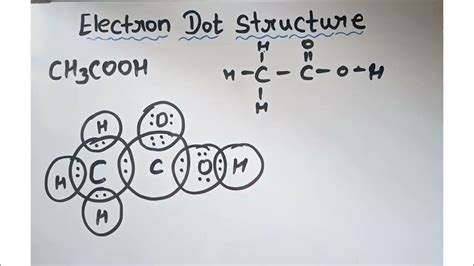 Electron Dot Structure
CH₃COOH
H O
H - C - C - O - H
H
H O
H C C O H
H